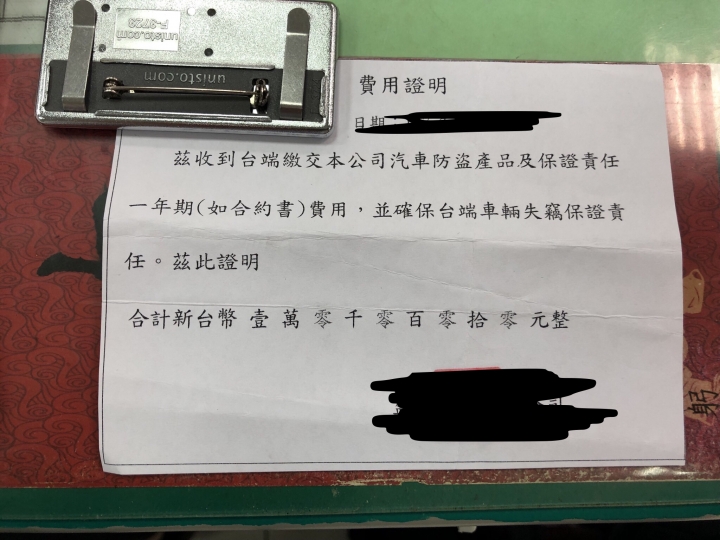 unisto.com
F-3723
unisto.com
費用證明
日期
茲收到台端繳交本公司汽車防盜產品及保證責任
一年期(如合約書)費用，並確保台端車輛失竊保證責
任。茲此證明
合計新台幣 壹 萬 零 千 零 百 零 拾 零 元整
躬